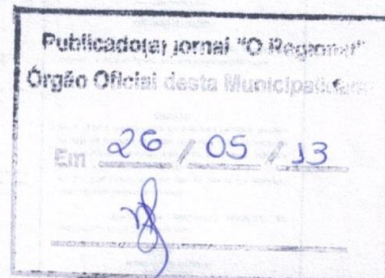 Publicado(a) jornal "O Regional"
Órgão Oficial desta Municipalidade
Em 26 / 05 / 13